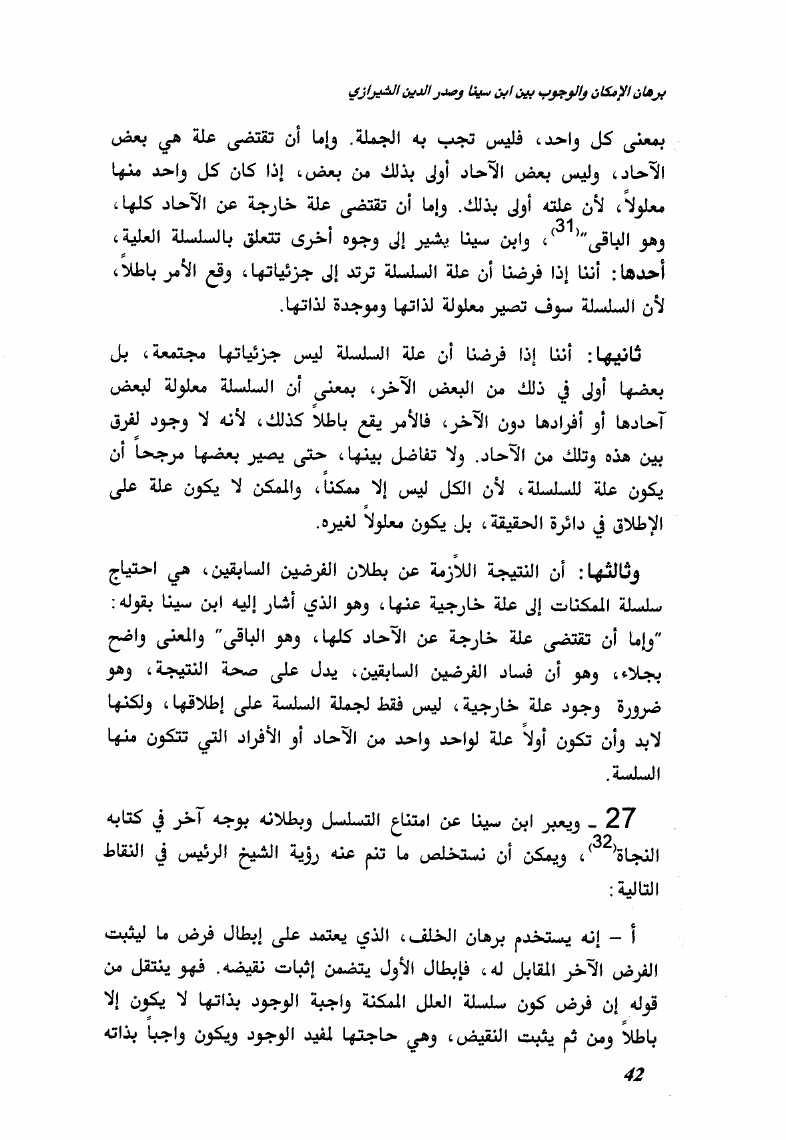 برهان الإمكان والوجوب بين ابن سينا وصدر الدين الشيرازي
بمعنى كل واحد، فليس تجب به الجملة. وإما أن تقتضى علة هي بعض
الآحاد، وليس بعض الآحاد أولى بذلك من بعض، إذا كان كل واحد منها
معلولاً، لأن علته أولى بذلك. وإما أن تقتضى علة خارجة عن الآحاد كلها،
وهو الباقى"(31)، وابن سينا يشير إلى وجوه أخرى تتعلق بالسلسلة العلية،
أحدها: أننا إذا فرضنا أن علة السلسلة ترتد إلى جزئياتها، وقع الأمر باطلاً،
لأن السلسلة سوف تصير معلولة لذاتها وموجدة لذاتها.
ثانيها: أننا إذا فرضنا أن علة السلسلة ليس جزئياتها مجتمعة، بل
بعضها أولى في ذلك من البعض الآخر، بمعنى أن السلسلة معلولة لبعض
آحادها أو أفرادها دون الآخر، فالأمر يقع باطلاً كذلك، لأنه لا وجود لفرق
بين هذه وتلك من الآحاد. ولا تفاضل بينها، حتى يصير بعضها مرجحاً أن
يكون علة للسلسلة، لأن الكل ليس إلا ممكناً، والممكن لا يكون علة على
الإطلاق في دائرة الحقيقة، بل يكون معلولاً لغيره.
وثالثها: أن النتيجة اللازمة عن بطلان الفرضين السابقين، هي احتياج
سلسلة الممكنات إلى علة خارجية عنها، وهو الذي أشار إليه ابن سينا بقوله:
"وإما أن تقتضى علة خارجة عن الآحاد كلها، وهو الباقى" والمعنى واضح
بجلاء، وهو أن فساد الفرضين السابقين، يدل على صحة النتيجة، وهو
ضرورة وجود علة خارجية، ليس فقط لجملة السلسة على إطلاقها، ولكنها
لابد وأن تكون أولاً علة لواحد واحد من الآحاد أو الأفراد التي تتكون منها
السلسة.
27 ـ ويعبر ابن سينا عن امتناع التسلسل وبطلانه بوجه آخر في كتابه
النجاة(32)، ويمكن أن نستخلص ما تنم عنه رؤية الشيخ الرئيس في النقاط
التالية:
أ – إنه يستخدم برهان الخلف، الذي يعتمد على إبطال فرض ما ليثبت
الفرض الآخر المقابل له، فإبطال الأول يتضمن إثبات نقيضه. فهو ينتقل من
قوله إن فرض كون سلسلة العلل الممكنة واجبة الوجود بذاتها لا يكون إلا
باطلاً ومن ثم يثبت النقيض، وهي حاجتها لمفيد الوجود ويكون واجباً بذاته
42